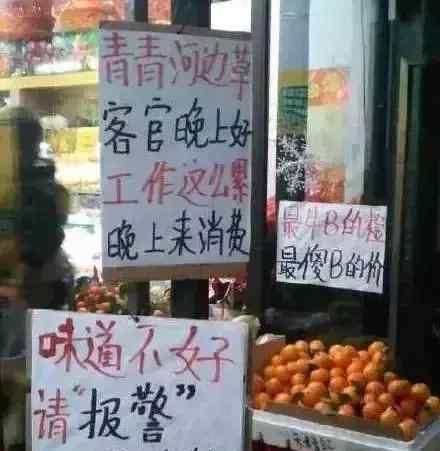 青青河边草
客官晚上好
工作这么累
晚上来消费
最牛B的橙
最傻B的价
味道不好
请"报警"